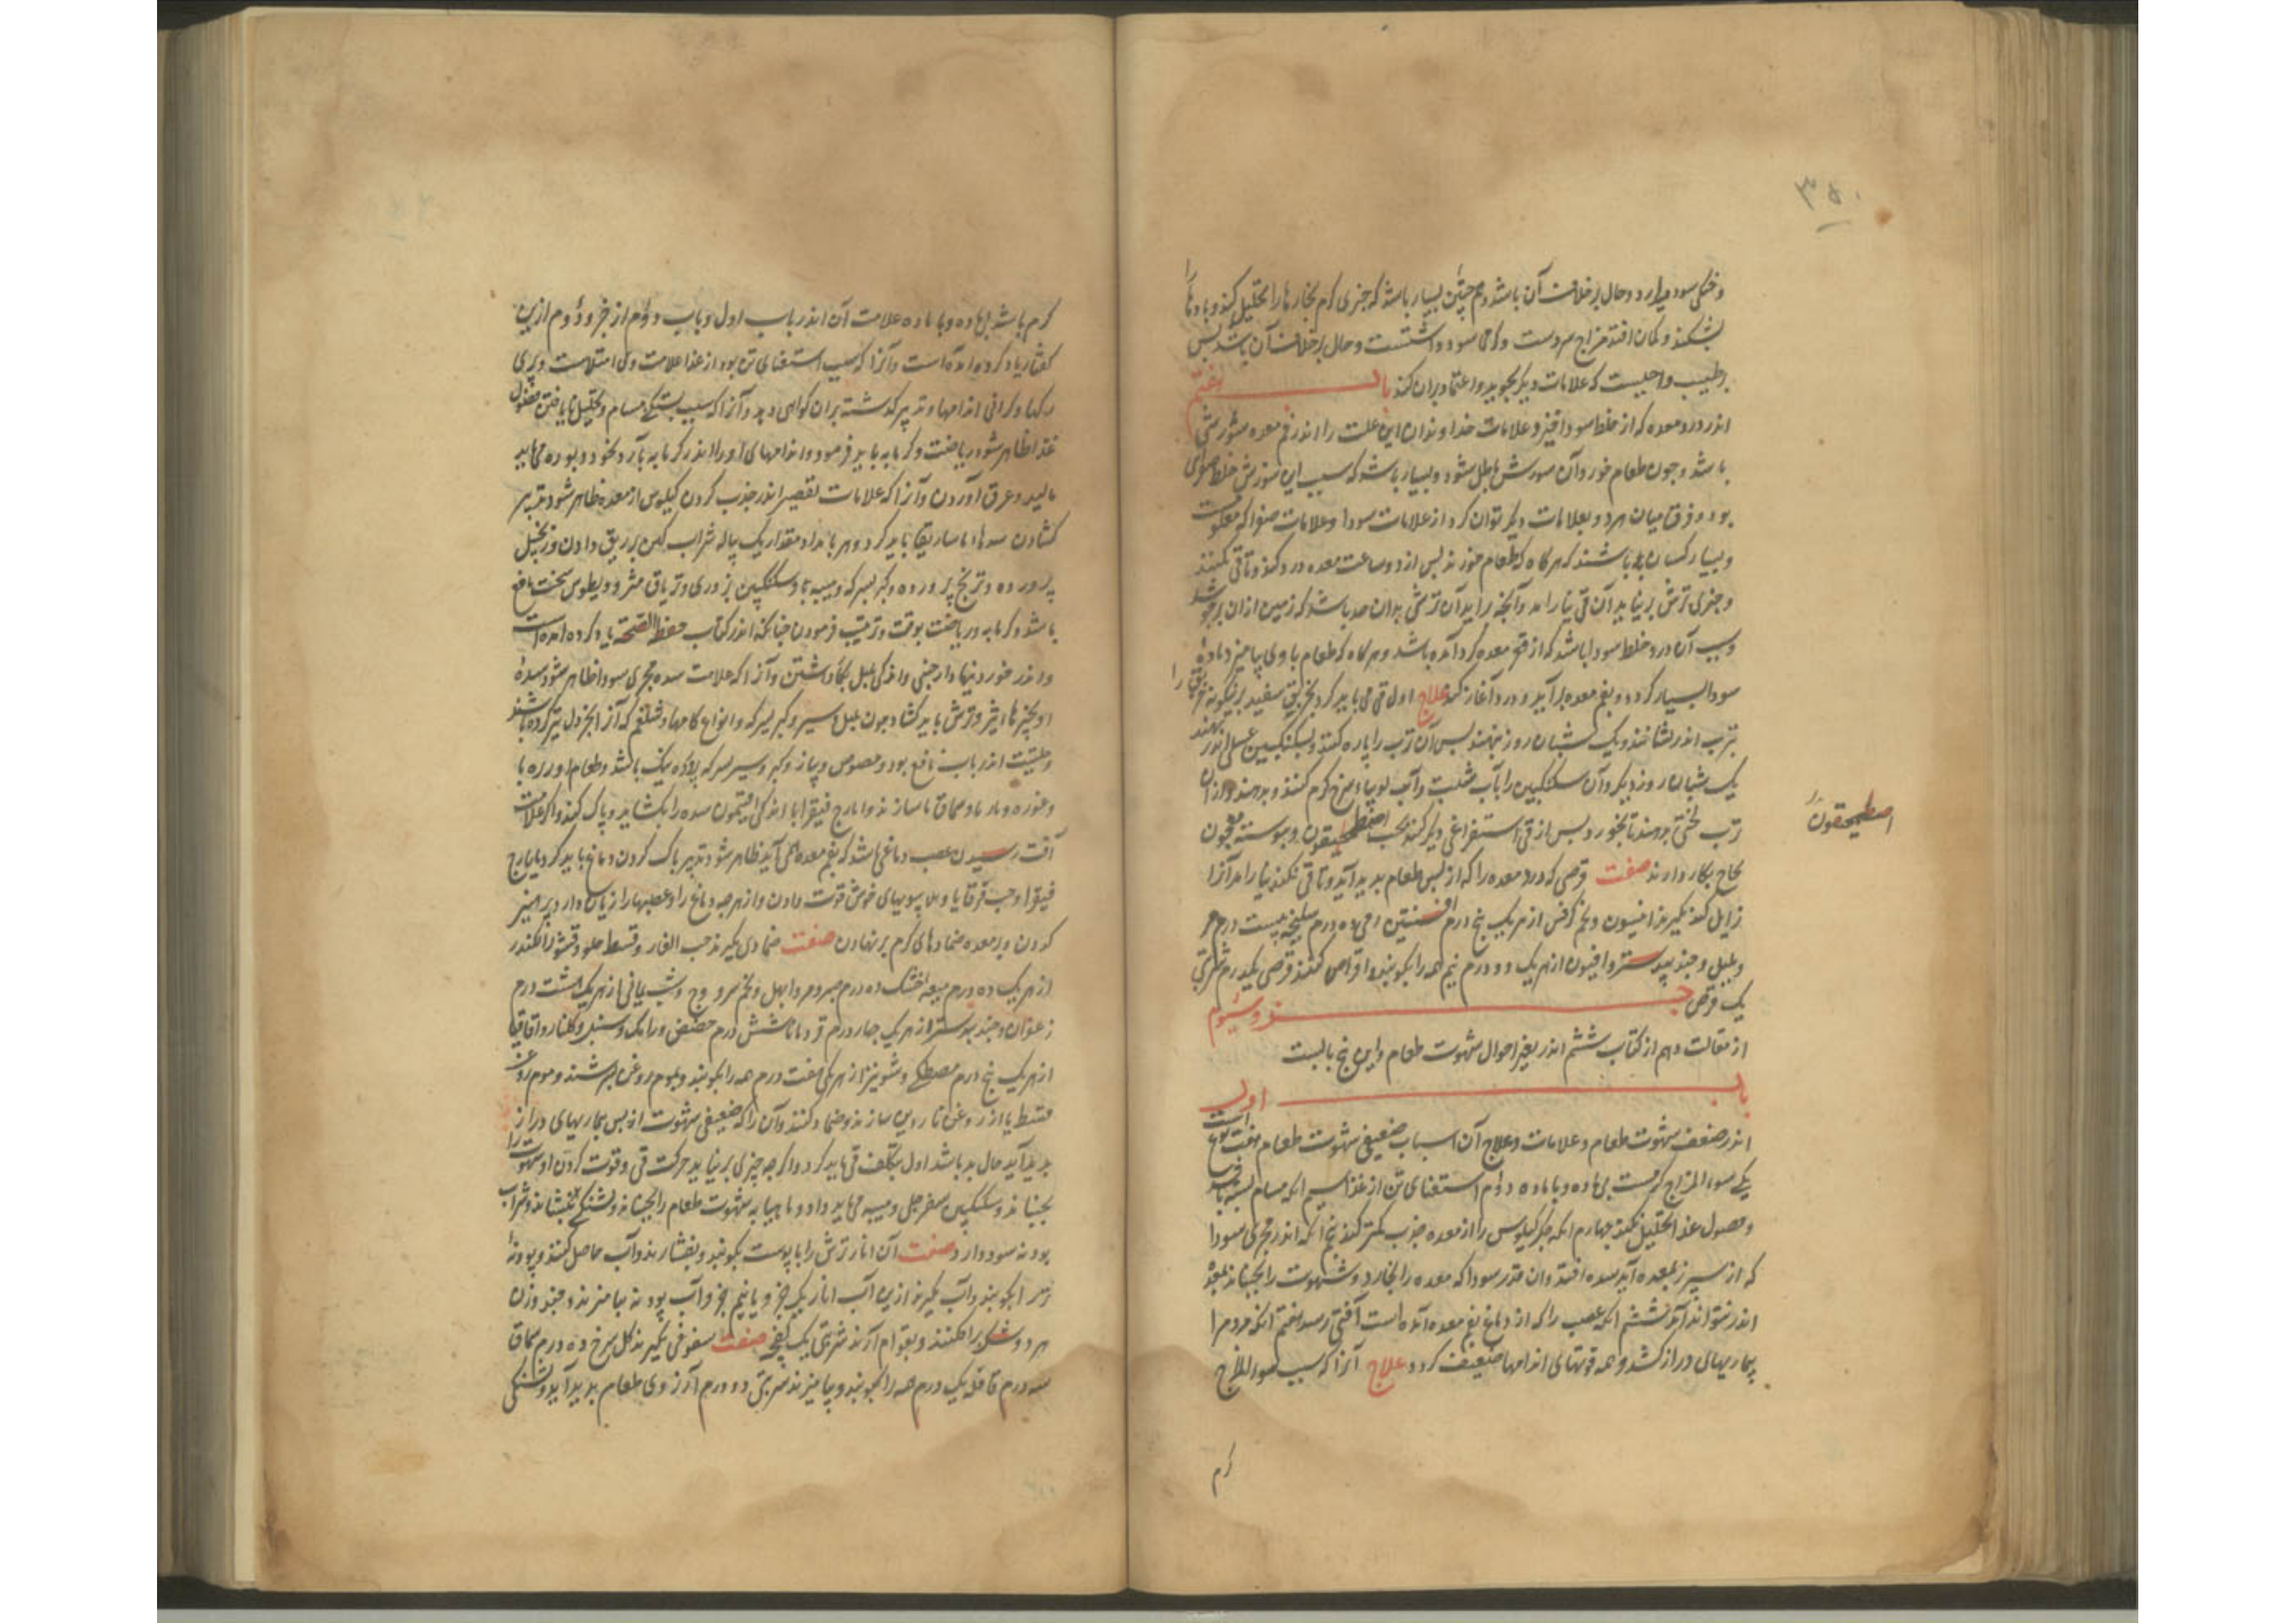 ۳۵۰
و خنکی سود میدارد و حال بر خلاف آن باشد و همچنین بسیار باشد که چیزی گرم بخارها را تحلیل کند و بادها را
بشکند و گمان افتد مزاج سردست و گرمی سود داشتست و حال بر خلاف آن باشد پس
بر طبیب واجبست که علامات دیگر بجوید و اعتماد بران کند باب هفتم
اندر درد معده که از خلط سودا خیزد و علامات خداوندان این علت را اندر فم معده سوزشی
باشد و چون طعام خورد آن سوزش باطل شود و بسیار باشد که سبب این سوزش خلط صفرای
بود و فرق میان هر دو بعلامات دیگر توان کرد از علامات سودا و علامات صفرا که معلومست
و بسیار کسان باشند که هرگاه که طعام خورند پس از دو ساعت معده درد کند و تا قی نکنند
و چیزی ترش بر نیاید آن قی نیارامد و آنچه براید آن ترشی بدان حد باشد که زمین ازان بر جوشد
و سبب آن درد خلط سودا باشد که از قعر معده گرد آمده باشد و هرگاه که طعام با وی بیامیزد ماده
سودا بسیار گردد و بفم معده بر آید و درد آغاز کند علاج اول قی می باید کرد بخربق سفید برینگونه خربق را
بترب اندر نشانند و یک شبان روز بنهند پس آن ترب را پاره کنند و بسکنگبین عسلی اندر نهند
یک شبان روز دیگر و آن سکنگبین را با آب شبت و آب لوبیا سرخ گرم کنند و بدهند و ازان
ترب لختی بدهند تا بخورد و پس از قی استفراغی دیگر کنند بحب اصطمحیقون و پیوسته معجون
نجاح بکار دارند صفت قرصی که درد معده را که از پس طعام پدید آید و تا قی نکنند نیارامد آنرا
زایل کند بگیرند انیسون و تخم کرفس از هر یک پنج درم افسنتین رومی ده درم سلیخه بیست درم مر
و پلپل و جندبیدستر و افیون از هر یک دو درم نیم همه را بکوبند و اقراص کنند قرصی یکدرم شربتی
یک قرص جزو سیوم
از مقالت دهم از کتاب ششم اندر تغیر احوال شهوت طعام و این پنج بابست
باب اول
اندر ضعف شهوت طعام و علامات و علاج آن اسباب ضعیفی شهوت طعام هفت نوع است
یکی سوء المزاج گرمست بی ماده و با ماده دوم استغنای تن از غذا سیم آنکه مسام بسته باشد
و فضول غذا تحلیل نکند چهارم آنکه جگر کیلوس را از معده جذب کمتر کند پنجم آنکه اندر مجری سودا
که از سپرز بمعده آید سده افتد و ان قدر سودا که معده را بخارد و شهوت را بجنباند بمعده
اندر نتواند آمد ششم آنکه عصب را که از دماغ بفم معده آمده است آفتی رسد هفتم آنکه مردم را
بیماریهای دراز کشد و همه قوتهای اندامها ضعیف گردد علاج آنرا که سبب سوء المزاج
گرم
اصطمحیقون
گرم باشد بی ماده و با ماده علامت آن اندر باب اول و باب دوم از جزو دوم ازین
گفتار یاد کرده امده است و آنرا که سبب استغنای تن بود از غذا علامت وی امتلاست و پری
رگها و گرانی اندامها و تدبیر گذشته بران گواهی دهد و آنرا که سبب بستگی مسام و تحلیل نا یافتن فضول
غذا ظاهر شود ریاضت و گرمابه باید فرمود و اندامهای او را اندر گرمابه بآرد نخود و بوره می باید
مالید و عرق آوردن و آنرا که علامات تقصیر اندر جذب کردن کیلوس از معده ظاهر شود تدبیر
گشادن سدهاء ماساریقا باید کرد و هر بامداد مقدار یک پیاله شراب کهن بر ریق دادن و زنجبیل
پرورده و ترنج پرورده و کبر بسرکه و میبه با و سکنگبین بزوری و تریاق مثرودیطوس سخت نافع
باشد و گرمابه و ریاضت بوقت و ترتیب فرمودن چنانکه اندر کتاب حفظ الصحه یاد کرده امده است
و اندر خوردنیها دارچینی و اندکی پلپل بکار داشتن و آنرا که علامت سده مجری سودا ظاهر شود سده
او بچیزهاء تیز و ترش باید گشاد چون پلپل و سیر و کبر بسرکه و انواع کامها و شلغم که آنرا بخردل تیز کرده باشند
و حلتیت اندر باب نافع بود و مصوص و پیاز و کبر و سیر بسرکه پرورده نیک باشد و طعام او زیره با
و غوره و نار با و سماق با سازند و ایارج فیقرا با اندکی افتیمون سده را بگشاید و پاک کند و اگر علامت
آفت رسیدن عصب دماغی باشد که بفم معده همی آید ظاهر شود تدبیر پاک کردن دماغ باید کرد بایارج
فیقرا و حب قوقایا و پس ببویهای خوش قوت دادن و از هرچه دماغ را و عصبها را زیان دارد پرهیز
کردن و بر معده ضمادهای گرم بر نهادن صفت ضمادی بگیرند حب الغار و قسط حلو و قشور الکندر
از هر یک ده درم میعه خشک ده درم صبر و مر و ابهل و تخم سرو وج و شب یمانی از هر یک هشت درم
زعفران و جندبیدستر از هر یک چهار درم قردمانا شش درم حضض و رامک و سنبل و گلنار و اقاقیا
از هر یک پنج درم مصطکی و شونیز از هر یکی هفت درم همه را بکوبند و بموم روغن بسرشند و موم روغن
قسط یا از روغن ناردین سازند و ضماد کنند و آن را که ضعیفی شهوت از پس بیماریهای دراز
پدید آید حال بد باشد اول بتکلف قی باید کرد و اگر چه چیزی بر نیاید حرکت قی و قوت کردن او شهوت را
بجنباند و سکنگبین سفرجلی و میبه می باید داد و ماهیابه شهوت طعام را بجنباند و تشنگی بنشاند و شراب
پودنه سود دارد صفت آن انار ترش را با پوست بکوبند و بفشارند و آب حاصل کنند و پودنه
تر را بکوبند و آب بگیرند ازین آب انار یک جزو و یا نیم جزو آب پودنه بیامیزند و چند وزن
هر دو شکر برافکنند و بقوام آرند شربتی یک کفچه صفت سفوفی بگیرند گل سرخ ده درم سماق
سه درم قاقله یک درم همه را بکوبند و بیامیزند شربتی دو درم آرزوی طعام پدید آید و تشنگی